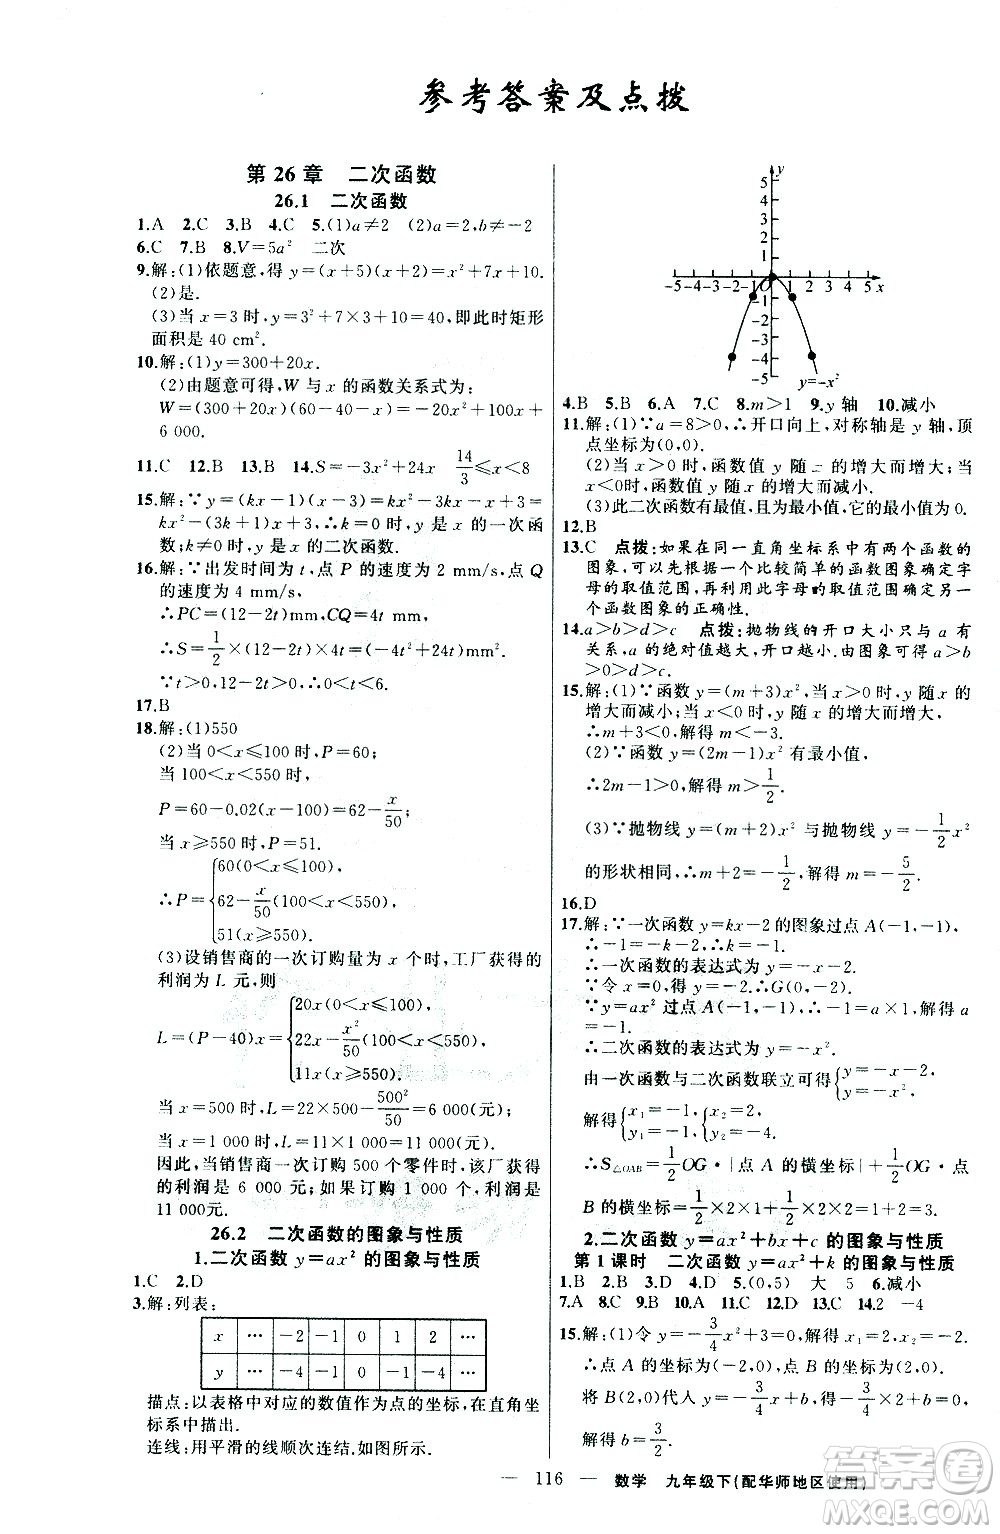 参考答案及点拨
第26章 二次函数
26.1 二次函数
1.A 2.C 3.B 4.C 5.(1)a≠2 (2)a=2,b≠-2
6.C 7.B 8.V=5a² 二次
9.解:(1)依题意,得 y=(x+5)(x+2)=x²+7x+10.
(2)是.
(3)当 x=3 时,y=3²+7×3+10=40,即此时矩形
面积是 40 cm².
10.解:(1)y=300+20x.
(2)由题意可得,W 与 x 的函数关系式为:
W=(300+20x)(60-40-x)=-20x²+100x+
6 000.
11.C 12.B 13.B 14.S=-3x²+24x 14/3≤x<8
15.解:∵y=(kx-1)(x-3)=kx²-3kx-x+3=
kx²-(3k+1)x+3,∴k=0 时,y 是 x 的一次函
数;k≠0 时,y 是 x 的二次函数.
16.解:∵出发时间为 t,点 P 的速度为 2 mm/s,点 Q
的速度为 4 mm/s,
∴PC=(12-2t) mm,CQ=4t mm,
∴S=1/2×(12-2t)×4t=-4t²+24t.
∵t>0,12-2t>0,∴0<t<6.
17.B
18.解:(1)550
(2)当 0<x≤100 时,P=60;
当 100<x<550 时,
P=60-0.02(x-100)=62-x/50;
当 x≥550 时,P=51.
∴P={60(0<x≤100),
62-x/50(100<x<550),
51(x≥550).
(3)设销售商的一次订购量为 x 个时,工厂获得的
利润为 L 元,则
L=(P-40)x={20x(0<x≤100),
22x-x²/50(100<x<550),
11x(x≥550).
当 x=500 时,L=22×500-500²/50=6 000(元);
当 x=1 000 时,L=11×1 000=11 000(元).
因此,当销售商一次订购 500 个零件时,该厂获得
的利润是 6 000 元;如果订购 1 000 个,利润是
11 000元.
26.2 二次函数的图象与性质
1.二次函数 y=ax² 的图象与性质
1.C 2.D
3.解:列表:
x … -2 -1 0 1 2 …
y … -4 -1 0 -1 -4 …
描点:以表格中对应的数值作为点的坐标,在直角坐
标系中描出.
连线:用平滑的线顺次连结,如图所示.
y
5
4
3
2
1
-5-4-3-2-1 O 1 2 3 4 5 x
-1
-2
-3
-4
-5
y=-x²
4.B 5.B 6.A 7.C 8.m>1 9.y 轴 10.减小
11.解:(1)∵a=8>0,∴开口向上,对称轴是 y 轴,顶
点坐标为(0,0).
(2)当 x>0 时,函数值 y 随 x 的增大而增大;当
x<0 时,函数值 y 随 x 的增大而减小.
(3)此二次函数有最值,且为最小值,它的最小值为 0.
12.B
13.C 点拨:如果在同一直角坐标系中有两个函数的
图象,可以先根据一个比较简单的函数图象确定字
母的取值范围,再利用此字母的取值范围确定另一
个函数图象的正确性.
14.a>b>d>c 点拨:抛物线的开口大小只与 a 有
关系,a 的绝对值越大,开口越小.由图象可得a>b
>0>d>c.
15.解:(1)∵函数 y=(m+3)x²,当 x>0 时,y 随 x 的
增大而减小;当 x<0 时,y 随 x 的增大而增大,
∴m+3<0,解得 m<-3.
(2)∵函数 y=(2m-1)x² 有最小值,
∴2m-1>0,解得 m>1/2.
(3)∵抛物线 y=(m+2)x² 与抛物线 y=-1/2x²
的形状相同,∴m+2=-1/2,解得 m=-5/2.
16.D
17.解:∵一次函数 y=kx-2 的图象过点 A(-1,-1),
∴-1=-k-2,解得 k=-1.
∴一次函数的表达式为 y=-x-2.
∵令 x=0,得 y=-2.∴G(0,-2).
∵y=ax² 过点 A(-1,-1),∴-1=a×1,解得 a
=-1.
∴二次函数的表达式为 y=-x².
由一次函数与二次函数联立可得{y=-x-2,
y=-x²,
解得{x₁=-1, y₁=-1,{x₂=2, y₂=-4.
∴S△OAB=1/2OG·|点 A 的横坐标|+1/2OG·点
B 的横坐标=1/2×2×1+1/2×2×2=1+2=3.
2.二次函数 y=ax²+bx+c 的图象与性质
第1课时 二次函数 y=ax²+k 的图象与性质
1.B 2.B 3.D 4.D 5.(0,5) 大 5 6.减小
7.A 8.C 9.C 10.A 11.C 12.D 13.C 14.2 -4
15.解:(1)令 y=-3/4x²+3=0,解得 x₁=2,x₂=-2.
∴点 A 的坐标为(-2,0),点 B 的坐标为(2,0).
将 B(2,0)代入 y=-3/4x+b,得 0=-3/4×2+b,
解得 b=3/2.
— 116 — 数学 九年级下(配华师地区使用)
答案圈